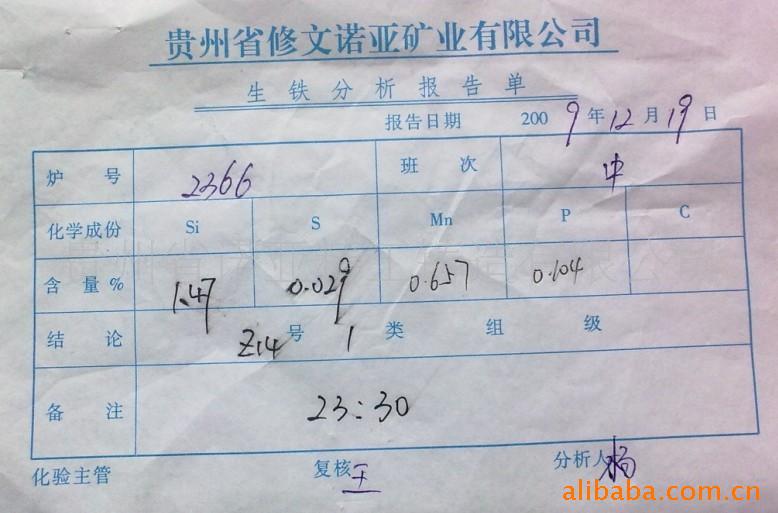 贵州省修文诺亚矿业有限公司
生铁分析报告单
报告日期 2009年12月19日
炉号 2366 班次 中
化学成份 Si S Mn P C
含量% 1.47 0.029 0.657 0.104
结论 Z14号 1类 组 级
备注 23:30
化验主管 复核 王 分析人 杨
alibaba.com.cn